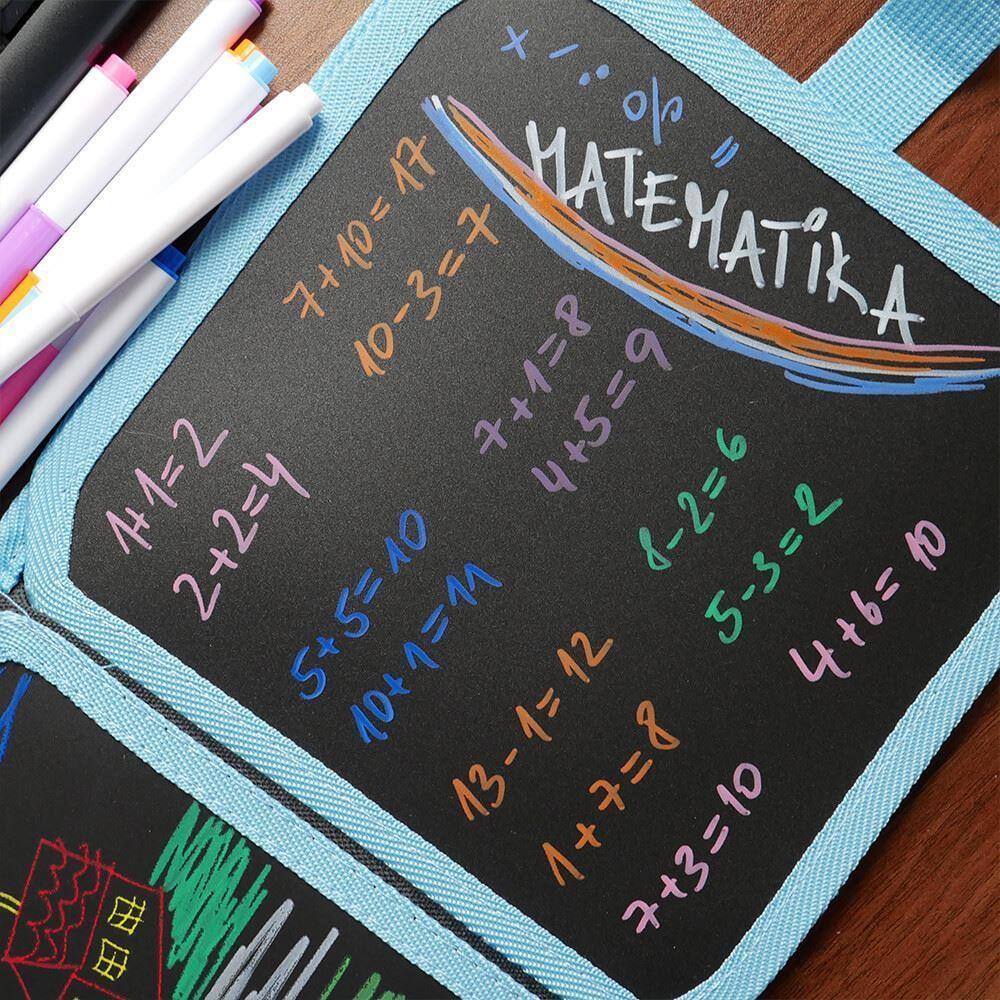 × - : % =
MATEMATIKA
7+10=17
10-3=7
7+1=8
4+5=9
1+1=2
2+2=4
8-2=6
5-3=2
5+5=10
10+1=11
4+6=10
13-1=12
1+7=8
7+3=10